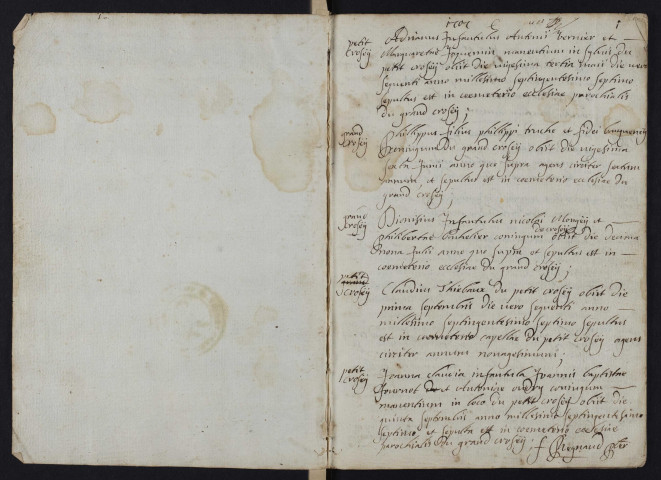 1
petit crosey
Adrianus Infantulus Antonii Vernier et
Margaretae Jomenin manentium in sylvis du
petit crosey obiit die vigesima tertia maii die vero
sequenti anno millesimo septingentesimo septimo
sepultus est in coemeterio ecclesiae parochialis
du grand crosey;
grand crosey
Philippus filius philippi truche et
coniugum du grand crosey obiit die vigesima
sexta Junii anno quo supra agens circiter
annum et sepultus est in coemeterio ecclesiae du
grand crosey;
grand crosey
Dionisius Infantulus nicolai et
philiberthae coniugum de crosey obiit die decima
nona Julii anno quo supra et sepultus est in
coemeterio ecclesiae du grand crosey;
petit crosey
Claudius Thiebaux du petit crosey obiit die
prima septembris die vero sequenti anno
millesimo septingentesimo septimo sepultus
est in coemeterio capellae du petit crosey agens
circiter annum nonagesimum;
petit crosey
Joanna claudia infantula Joannis baptistae
Journot et Antoniae oudry coniugum
manentium in loco du petit crosey obiit die
quinta septembris anno millesimo septingentesimo
septimo et sepulta est in coemeterio ecclesiae
parochialis du grand crosey; f Regnaud